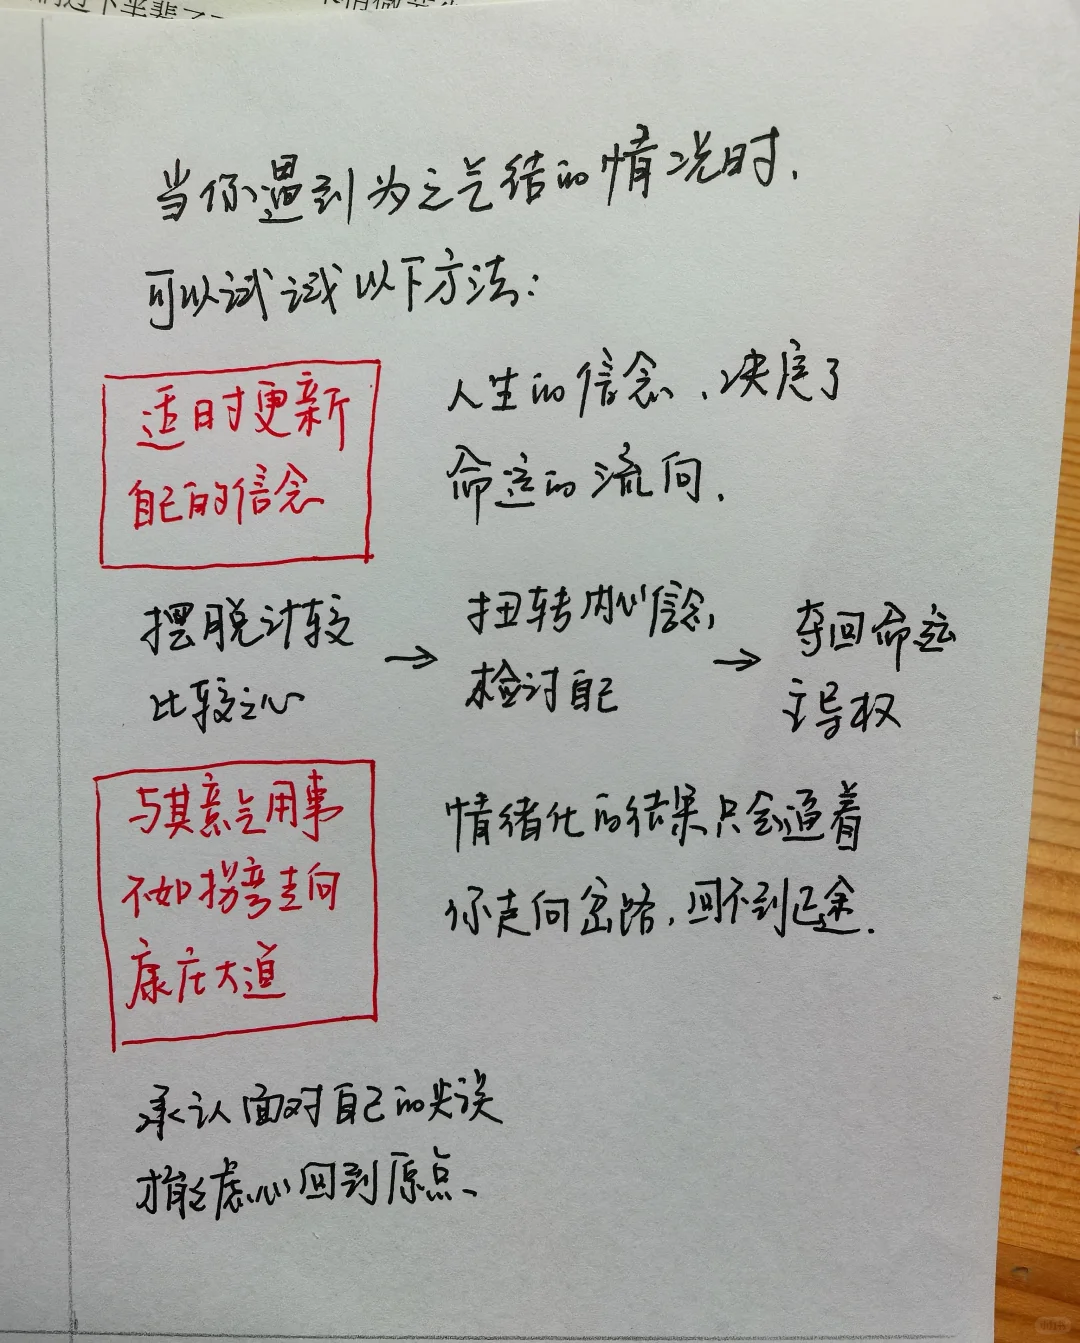 当你遇到为之气结的情况时,
可以试试以下方法:
适时更新
自己的信念
人生的信念、决定了
命运的流向.
摆脱计较
比较之心
→
扭转内心信念,
检讨自己
→
夺回命运
主导权
与其意气用事
不如拐弯走向
康庄大道
情绪化的结果只会逼着
你走向岔路,回不到正途.
承认面对自己的失误
才能虚心回到原点、